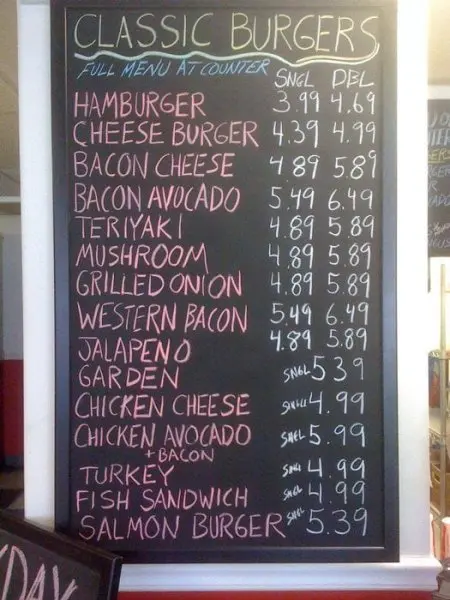 CLASSIC BURGERS
FULL MENU AT COUNTER
SNGL DBL
HAMBURGER 3.99 4.69
CHEESE BURGER 4.39 4.99
BACON CHEESE 4.89 5.89
BACON AVOCADO 5.49 6.49
TERIYAKI 4.89 5.89
MUSHROOM 4.89 5.89
GRILLED ONION 4.89 5.89
WESTERN BACON 5.49 6.49
JALAPENO 4.89 5.89
GARDEN SNGL 5.39
CHICKEN CHEESE SNGL 4.99
CHICKEN AVOCADO SNGL 5.99
+ BACON
TURKEY SNGL 4.99
FISH SANDWICH SNGL 4.99
SALMON BURGER SNGL 5.39
DAY